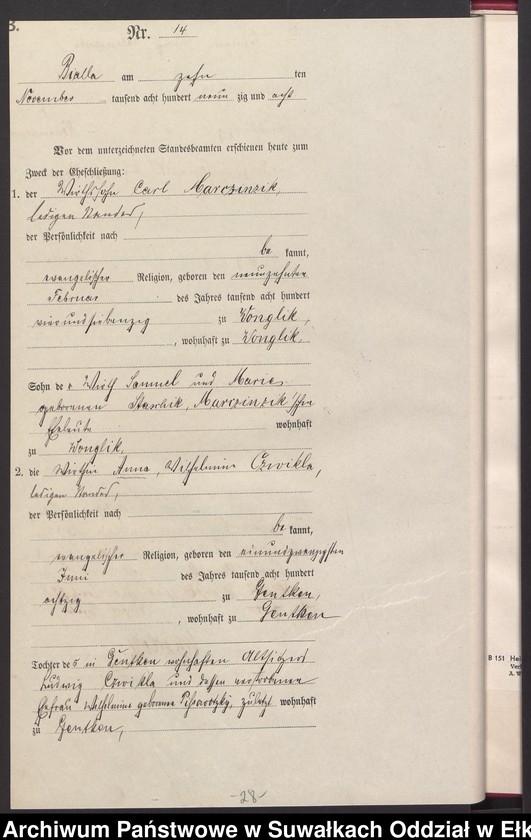 B.
Nr. 14
Bialla am zehn ten
November tausend acht hundert neun zig und acht
Vor dem unterzeichneten Standesbeamten erschienen heute zum
Zweck der Eheschließung:
1. der Wirthssohn Carl Marczinzik,
ledigen Standes,
der Persönlichkeit nach
be kannt,
evangelischer Religion, geboren den neunzehnten
Februar des Jahres tausend acht hundert
vierundsiebenzig zu Konglik,
, wohnhaft zu Konglik.
Sohn des Wirth Samuel und Marie
geborenen Marczinzik'schen
Eheleute wohnhaft
zu Konglik.
2. die Wirthin Anna, Wilhelmine Czwikla,
ledigen Standes,
der Persönlichkeit nach
be kannt,
evangelischer Religion, geboren den einundzwanzigsten
Juni des Jahres tausend acht hundert
achtzig zu Gentken,
, wohnhaft zu Gentken
Tochter des in Gentken wohnhaften Altsitzers
Ludwig Czwikla und dessen verstorbenen
Ehefrau Wilhelmine geborene zuletzt wohnhaft
zu Gentken,
-28-
B 151
Archiwum Państwowe w Suwałkach Oddział w Ełk